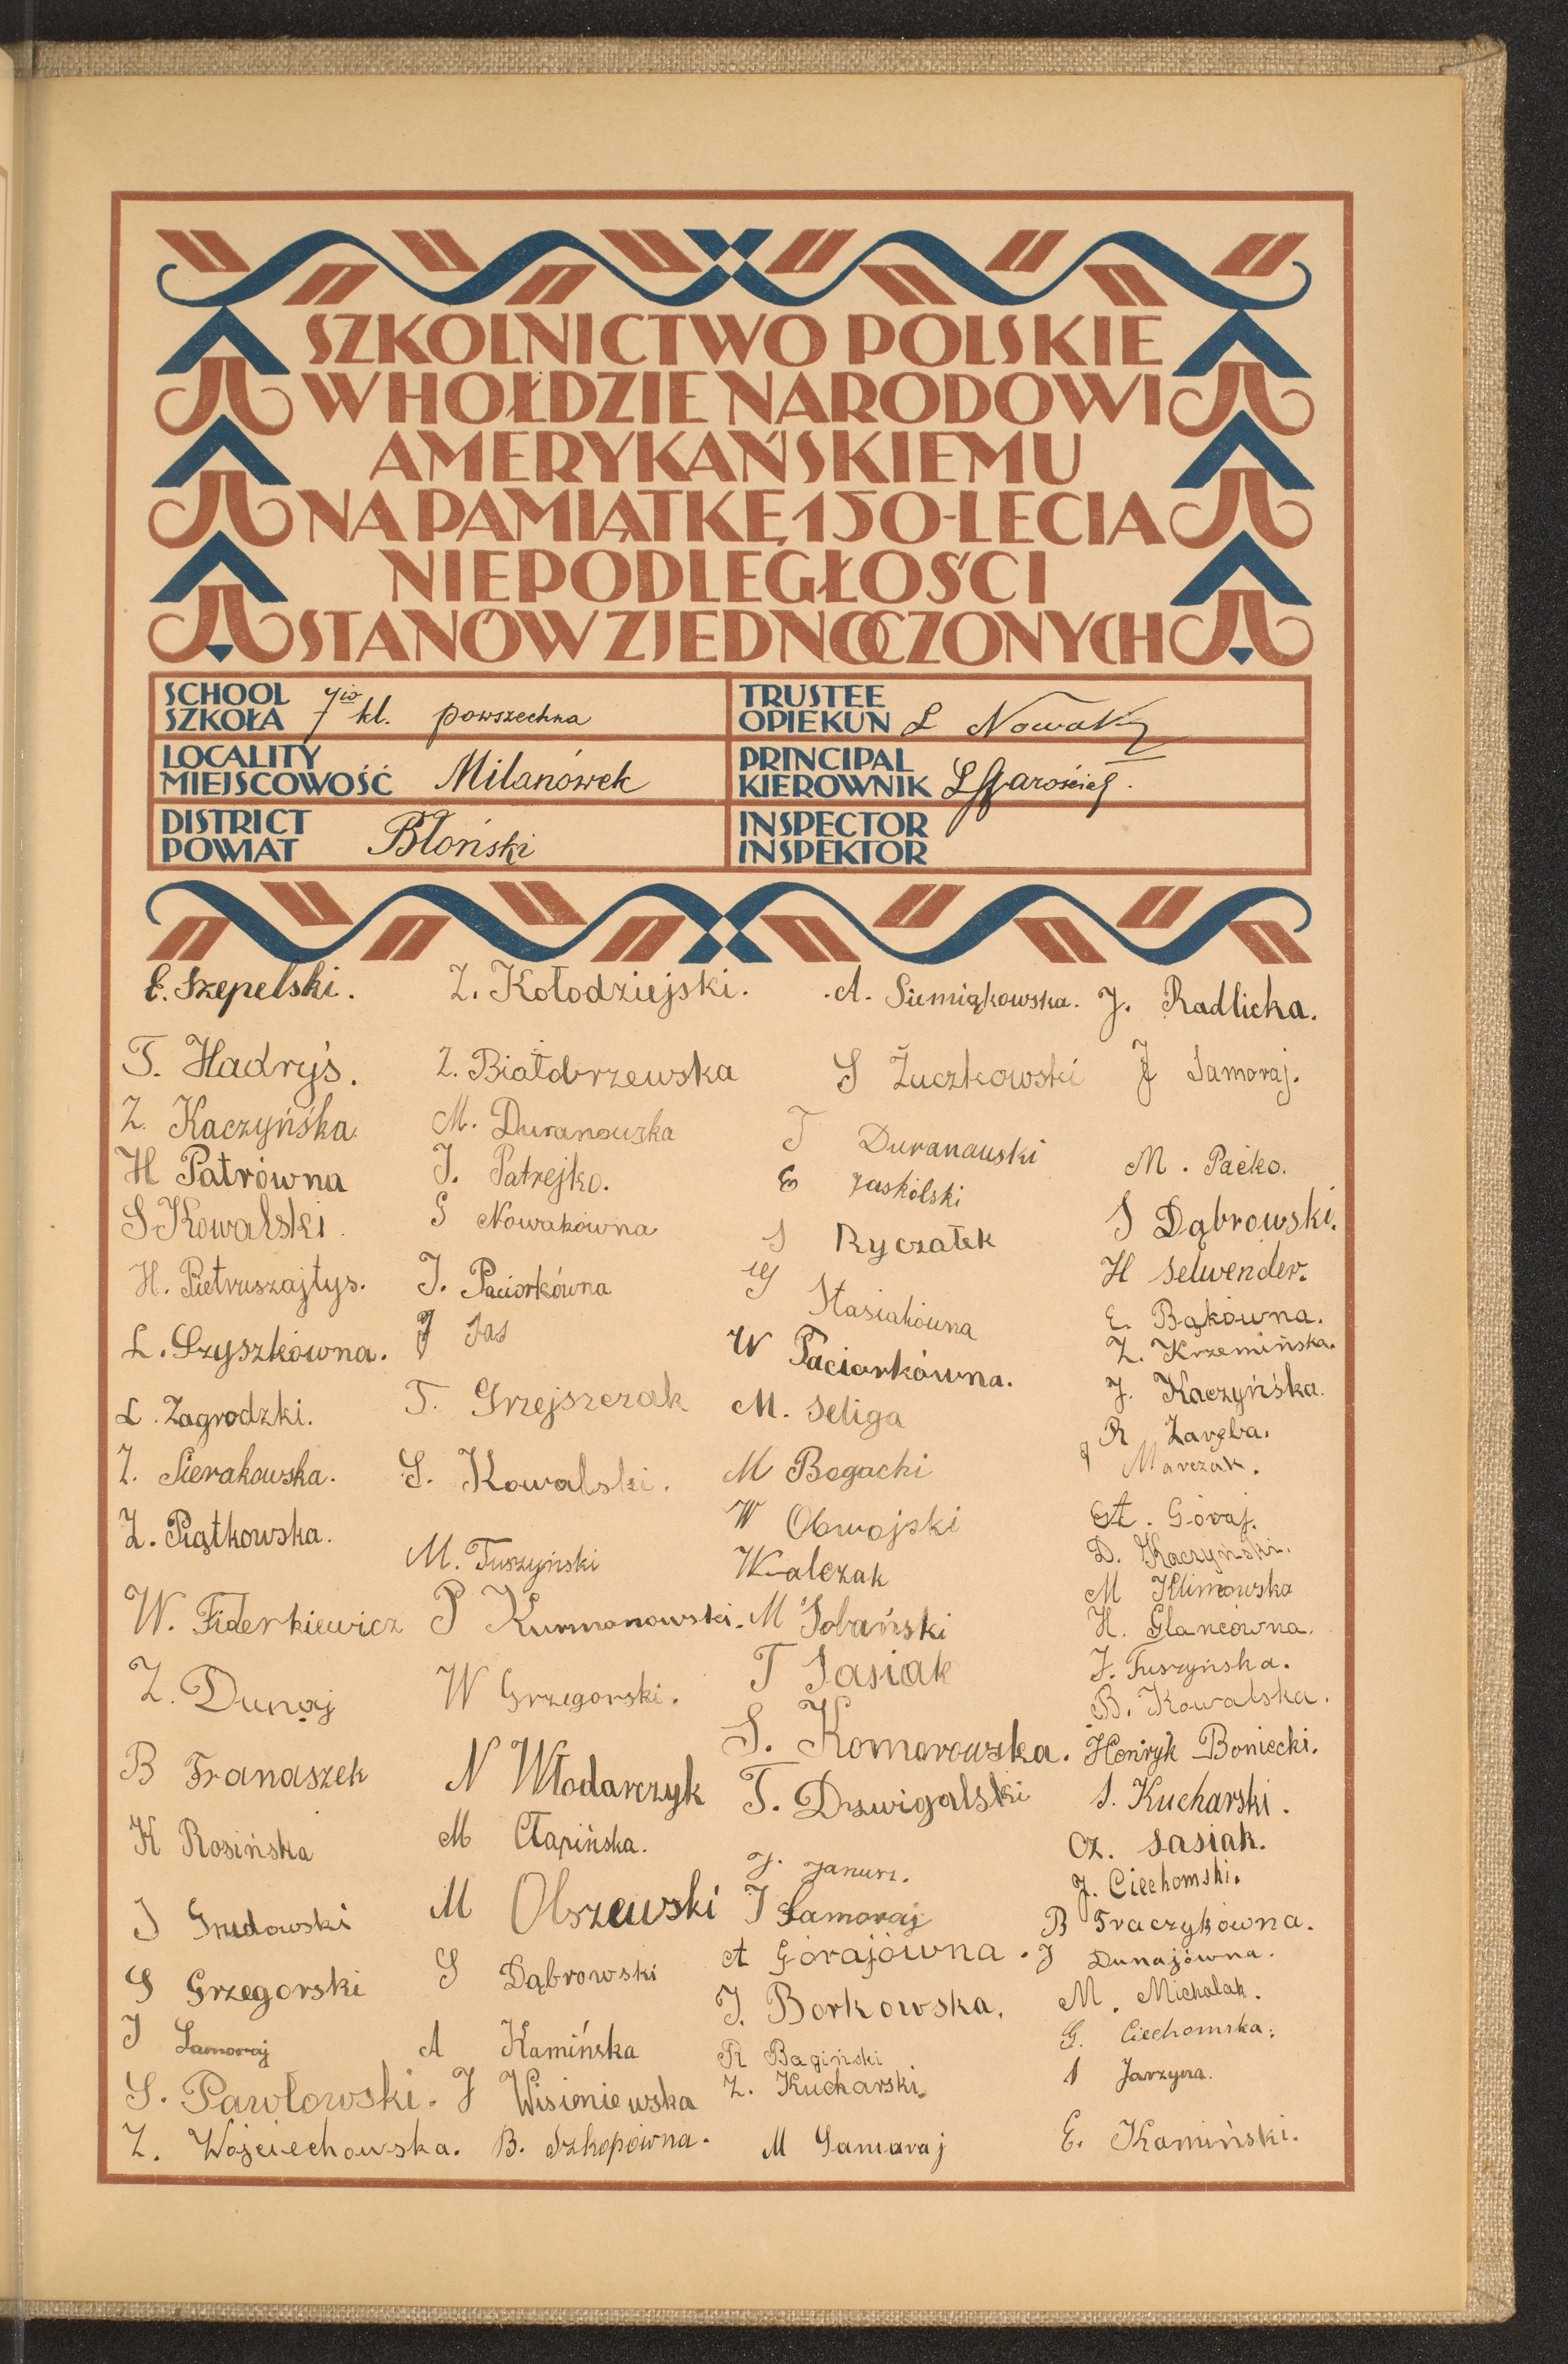 SZKOLNICTWO POLSKIE
W HOŁDZIE NARODOWI
AMERYKAŃSKIEMU
NA PAMIĄTKĘ 150-LECIA
NIEPODLEGŁOŚCI
STANÓW ZJEDNOCZONYCH
SCHOOL
SZKOŁA 7io kl. powszechna
TRUSTEE
OPIEKUN L Nowak
LOCALITY
MIEJSCOWOŚĆ Milanówek
PRINCIPAL
KIEROWNIK
DISTRICT
POWIAT Błoński
INSPECTOR
INSPEKTOR
E. Szepelski.
T. Hadryś.
Z. Kaczyńska.
H Patrówna
S Kowalski.
H. Pietruszajtys.
L. Szyszkówna.
L. Zagrodzki.
Z. Sierakowska.
Z. Piątkowska.
W. Fiderkiewicz
Z. Dunaj
B Franaszek
K Rosińska
J Grudowski
S Grzegorski
J Samoraj
S. Pawłowski.
Z. Wojciechowska.
Z. Kołodziejski.
Z. Białobrzewska
M. Duranowska
J. Patrejko.
G Nowakówna
J. Paciorkówna
J Jas
T. Grzejszczak
S. Kowalski.
M. Tuszyński
P Kurmanowski.
W Grzegorski.
N Włodarczyk
M Cłapińska.
M Olszewski
S Dąbrowski
A Kamińska
J Wisieniewska
B. Szkopówna.
A. Siemiąkowska.
S Żuczkowski
T Duranauski
E Jaskólski
S Ryczałek
Stasiakówna
W Paciorkówna.
M. Seliga
M Bogacki
W Obwojski
Walczak
M Sobański
T Sasiak
S. Komorowska.
T. Dzwigalski
J. Janusz.
J Samoraj
A Górajówna.
J. Borkowska.
R Bagiński
Z. Kucharski.
M Samaraj
J. Radlicka.
J Samoraj.
M. Paćko.
S Dąbrowski.
H Selwender.
E. Bąkówna.
Z. Krzemińska.
J. Kaczyńska.
R Zaręba.
J Marczak.
A. Góraj.
D. Kaczyński.
M Klimowska
H. Glancówna.
J. Tuszyńska.
B. Kowalska.
Henryk Boniecki.
S. Kucharski.
Cz. Sasiak.
J. Ciechomski.
B Traczykówna.
J Dunajówna.
M. Michalak.
G. Ciechomska.
S Jarzyna.
E. Kamiński.